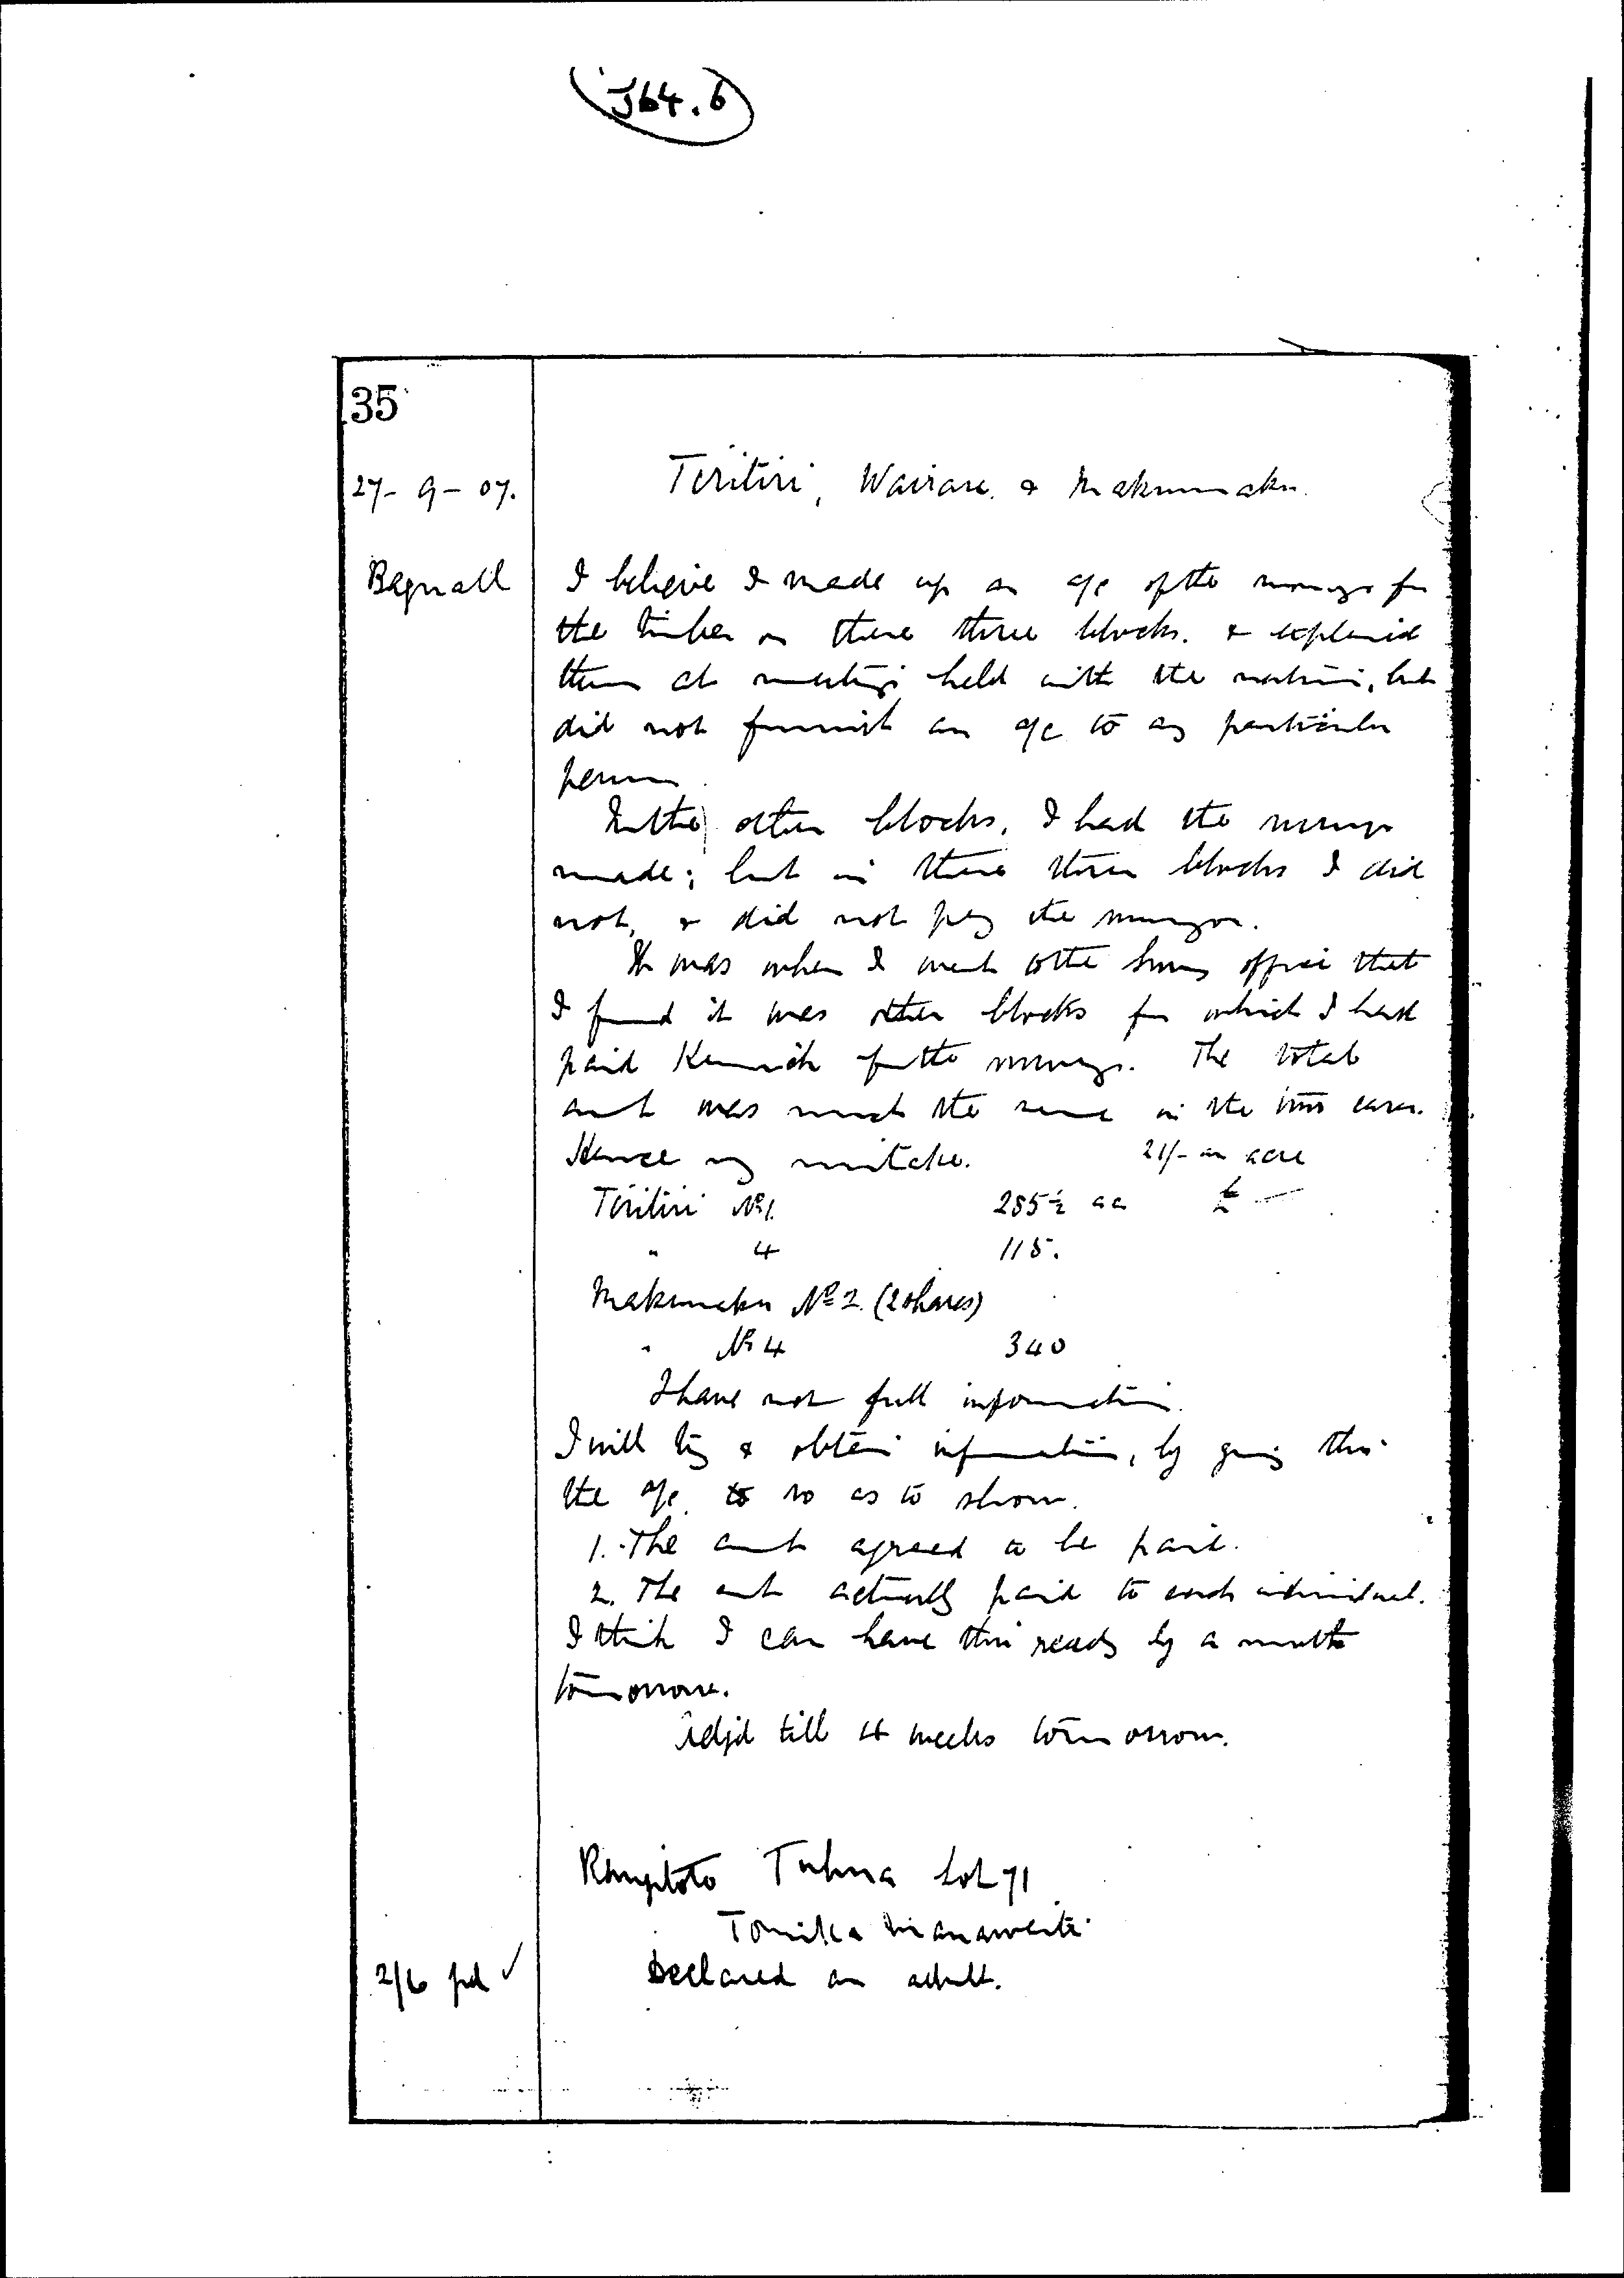 J64.6
35
27-9-07.
Tiritiri, Wairare & Makumaku.
Bagnall
I believe I made up an a/c of the moneys for
the timber on these three blocks. & explained
them at meetings held with the natives, but
did not furnish an a/c to any particular
person.
In the other blocks, I had the surveys
made; but in these three blocks I did
not, & did not pay the surveyor.
It was when I went to the Survey office that
I found it was other blocks for which I had
paid for the surveys. The total
amt was much the same in the two cases.
Hence my mistake. 21/- an acre
Tiritiri No 1. 285½ ac £ —
" 4 115.
Makumaku No 2. (2 shares)
" No 4 340
I have not full information.
I will try & obtain information, by going thro'
the a/c to so as to show.
1. The amt agreed to be paid.
2. The amt actually paid to each individual.
I think I can have this ready by a month
tomorrow.
Adjd till 4 weeks tomorrow.
Rangitoto Tuhua Lot 71
Manawaiti
2/6 pd ✓
Declared an adult.